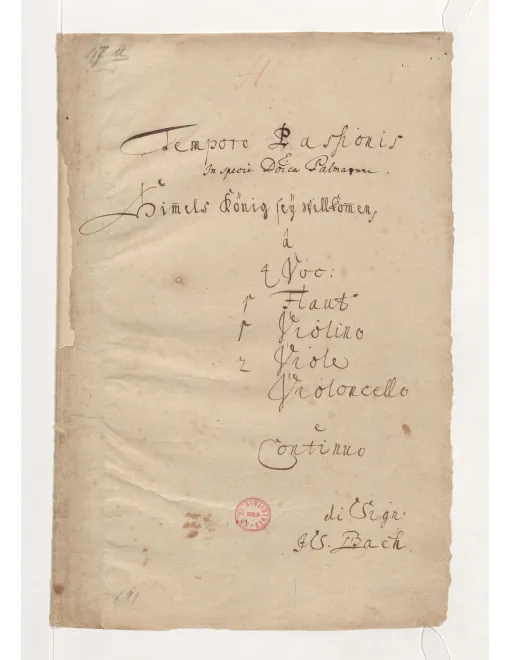 17 a
Tempore Passionis
In specie Doĉa Palmarum.
Himels König seÿ willkomen,
â
4 Voc:
1 Flaut
1 Violino
2 Viole
Violoncello
e
Continuo
di Sign:
J.S. Bach